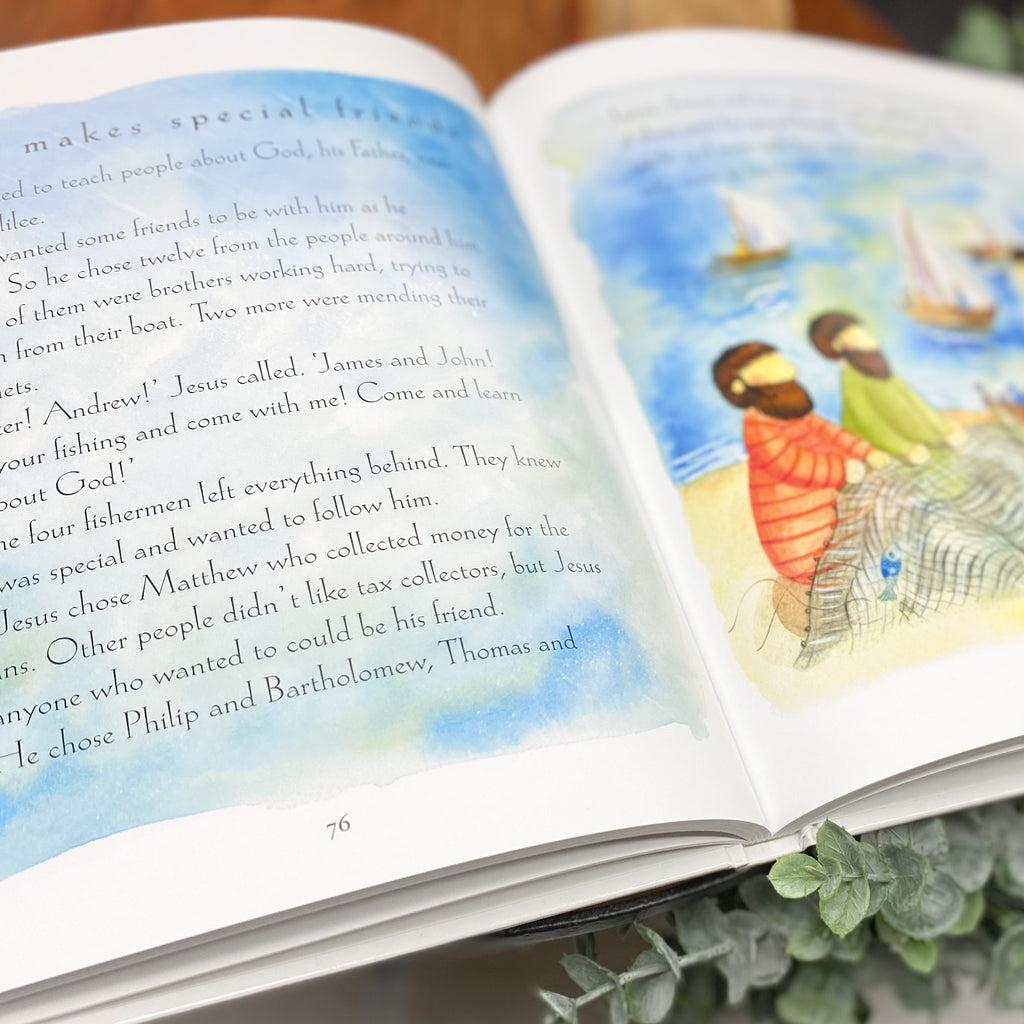 makes special friends
ed to teach people about God, his Father,
lilee.
wanted some friends to be with him as he
So he chose twelve from the people around him.
of them were brothers working hard, trying to
n from their boat. Two more were mending their
nets.
ter! Andrew!' Jesus called. 'James and John!
your fishing and come with me! Come and learn
bout God!'
he four fishermen left everything behind. They knew
was special and wanted to follow him.
Jesus chose Matthew who collected money for the
ans. Other people didn't like tax collectors, but Jesus
anyone who wanted to could be his friend.
He chose Philip and Bartholomew, Thomas and
76